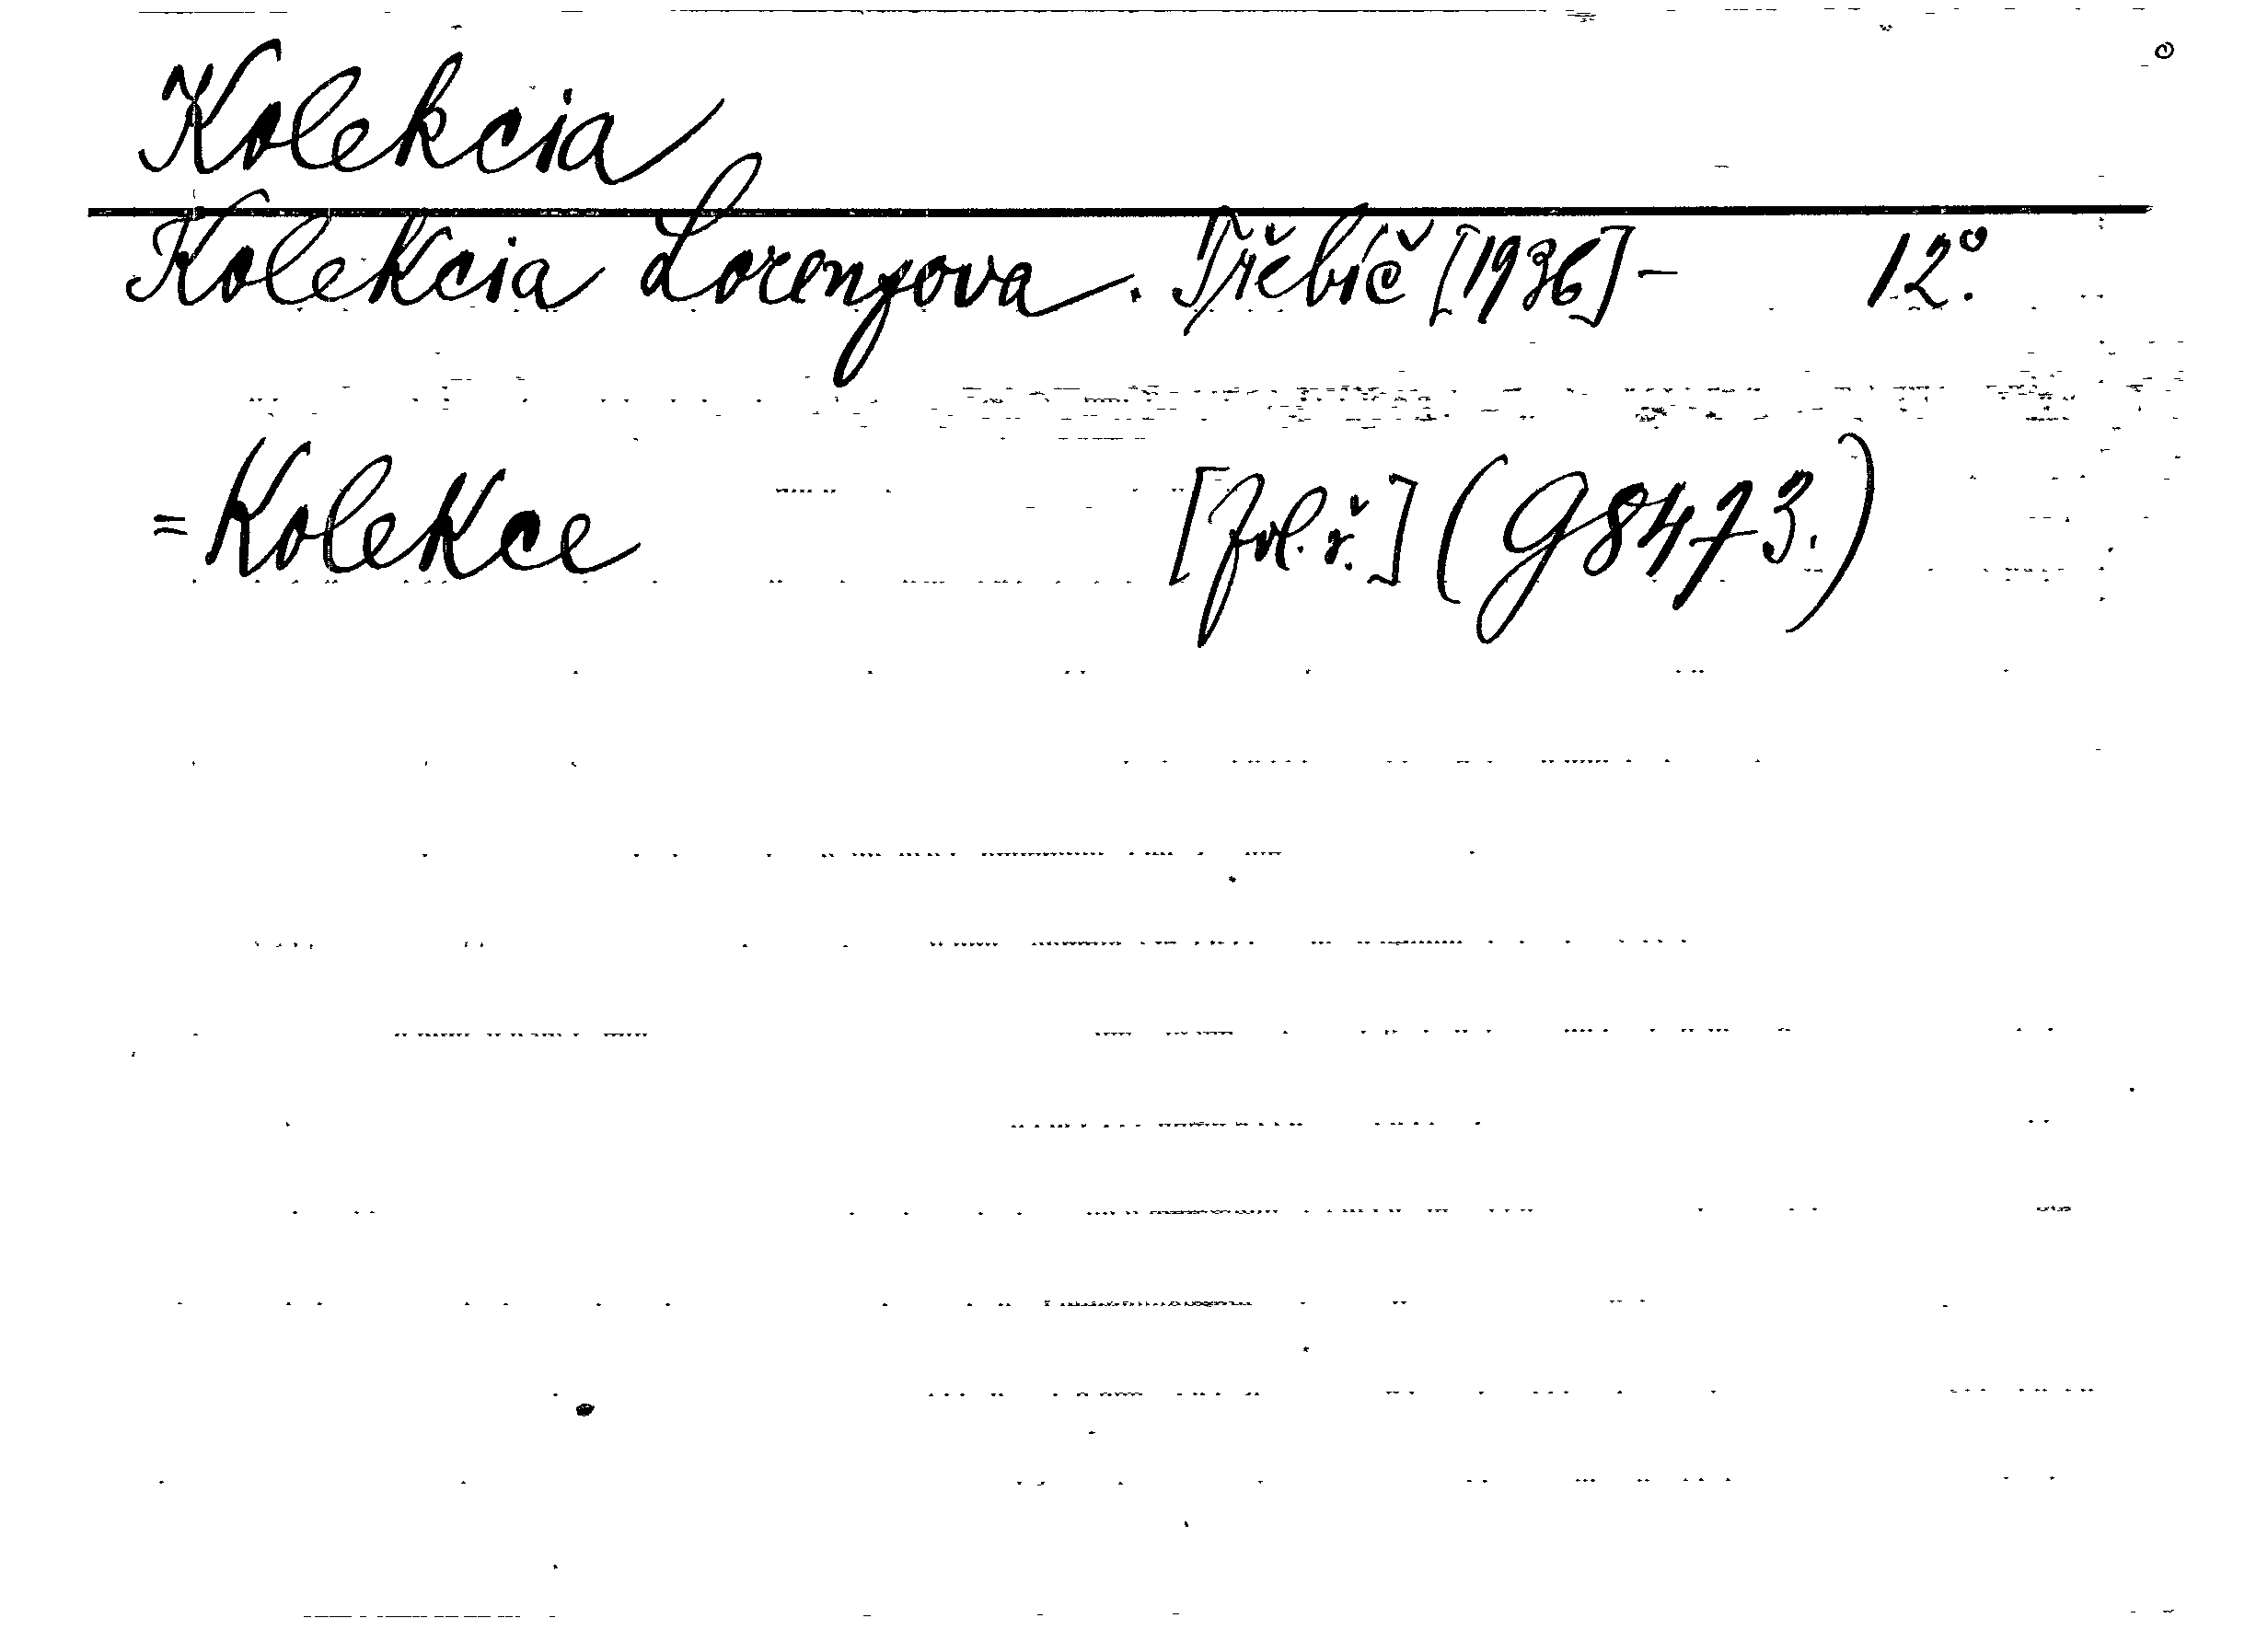 Kolekcia
Kolekcia Lorenzova. Třebíč [1936] - 12°.
= Kolekce [fol. ř.] (G 8473.)